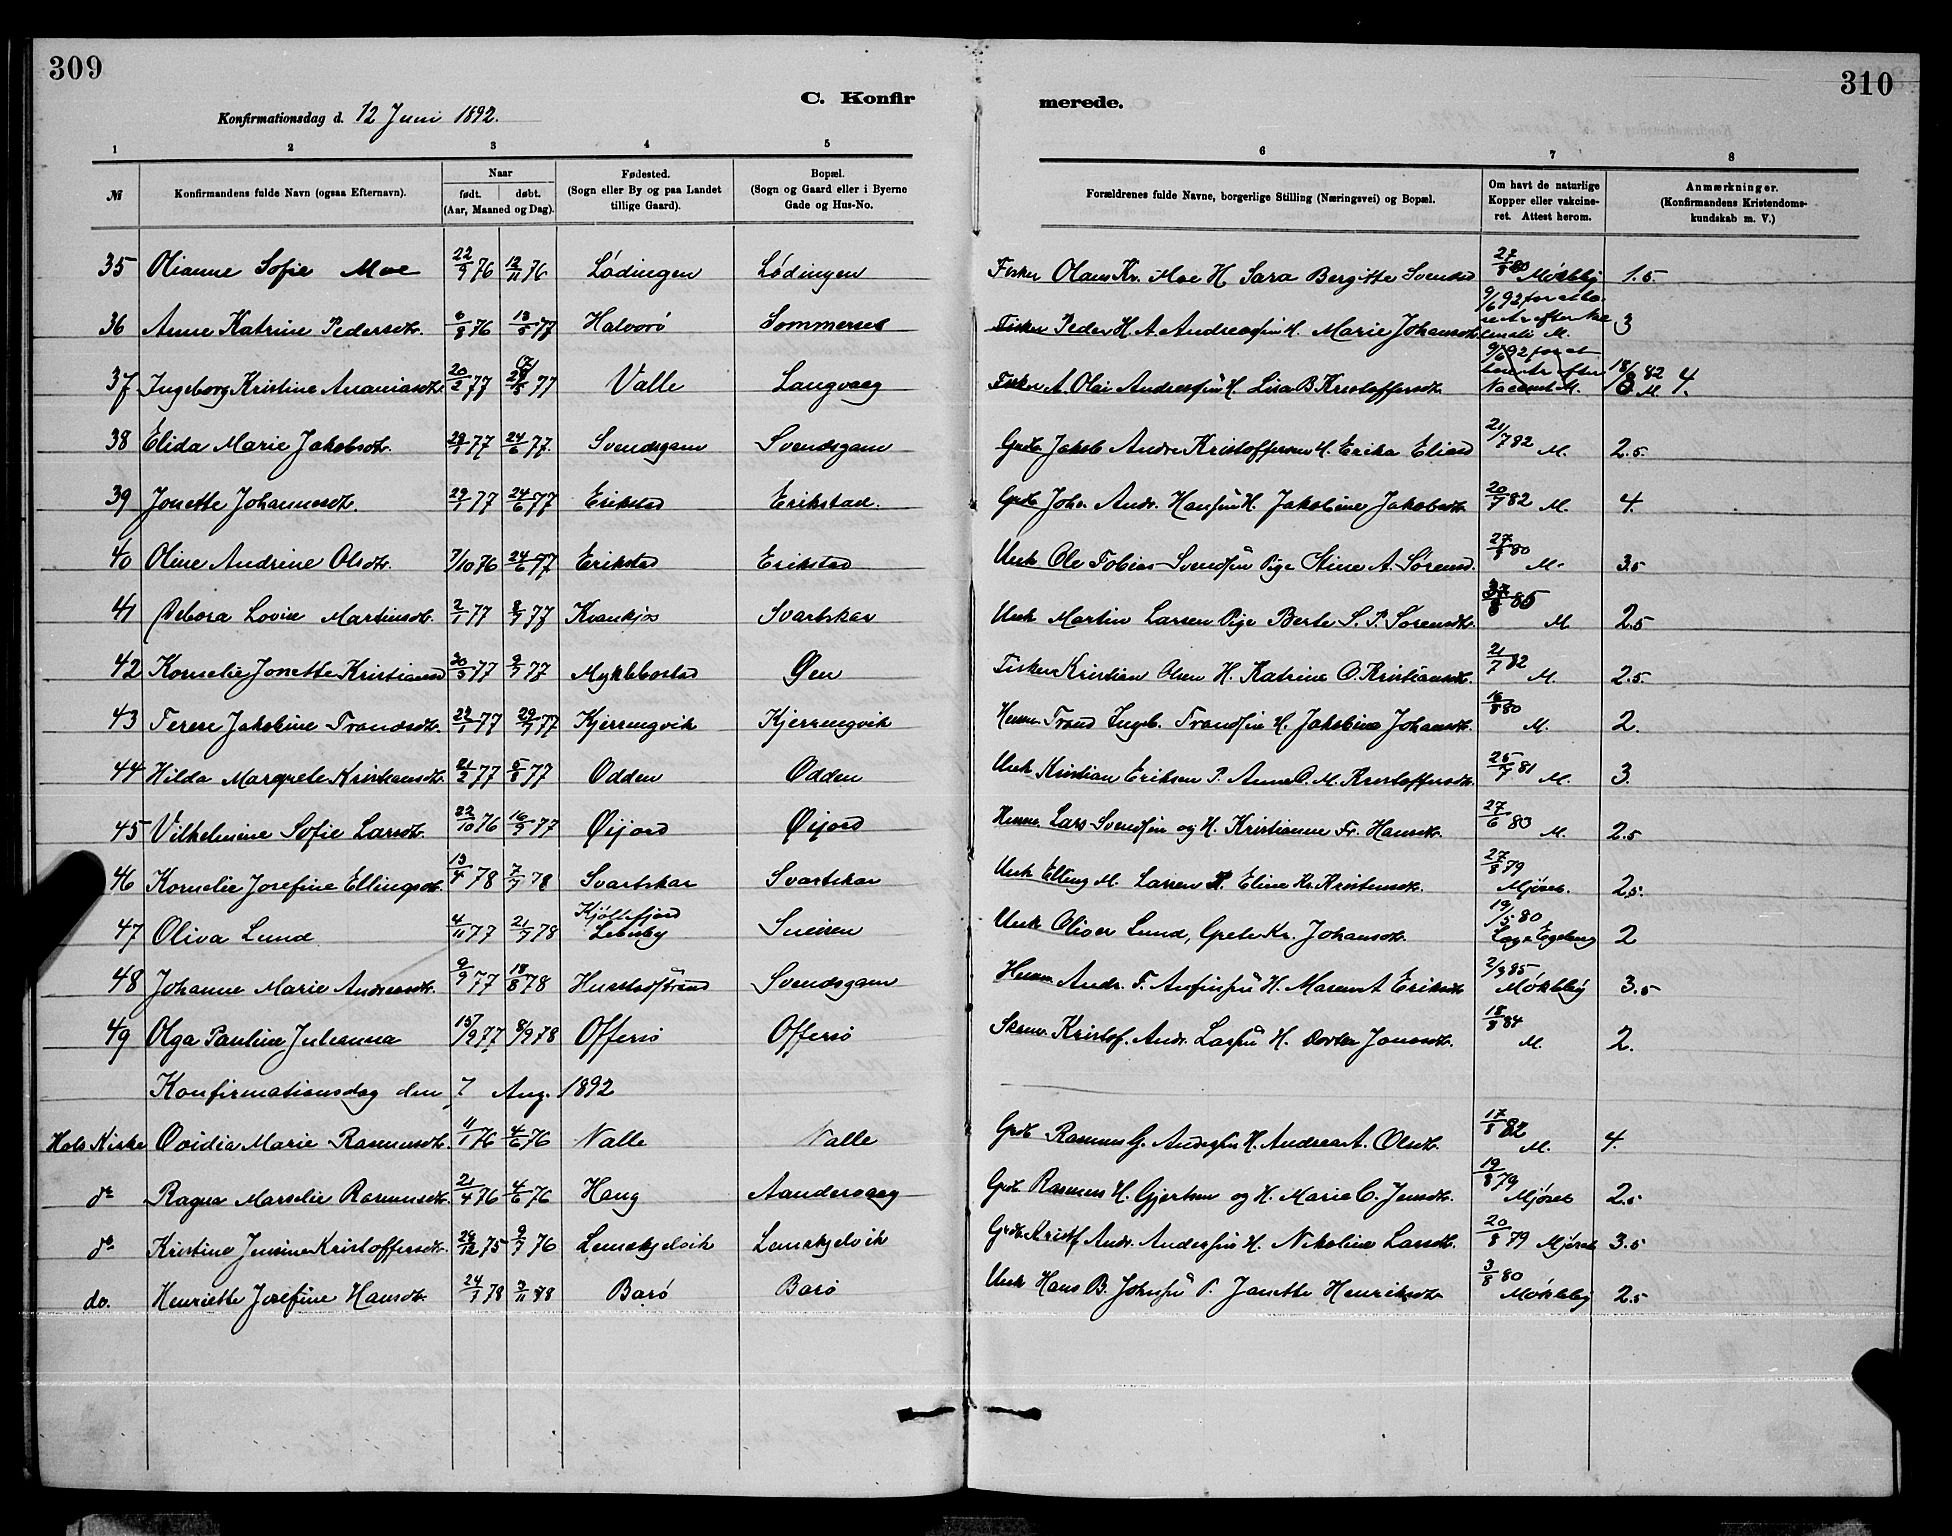 309
310
C. Konfir
merede.
Konfirmationsdag d. 12 Juni 1892.
1 2 3 4 5 6 7 8
№
Konfirmandens fulde Navn (ogsaa Efternavn).
Naar
født. døbt.
(Aar, Maaned og Dag).
Fødested.
(Sogn eller By og paa Landet
tillige Gaard).
Bopæl.
(Sogn og Gaard eller i Byerne
Gade og Hus-No.
Forældrenes fulde Navne, borgerlige Stilling (Næringsvei) og Bopæl.
Om havt de naturlige
Kopper eller vakcine-
ret. Attest herom.
Anmærkninger.
(Konfirmandens Kristendoms-
kundskab m. V.)
35 Olianne Sofie Moe 22/9 76 12/11 76 Lødingen Lødingen Fisker Olaus Kr. Moe H Sara Bergitte Svensd 27/8 80 Møkleby 1.5
36 Anne Katrine Pedersdtr. 6/8 76 13/5 77 Halvorö Sommersel Fisker Peder H. A. Andreassen H. Marie Johansdtr 9/6 92 M. 3
37 Ingeborg Kristine Ananiasdtr. 20/2 77 77 Valle Langvaag Fisker A. Olai Andersen H. Lisa B. Kristoffersdtr. 9/6 92 18/8 82 M. 4.
38 Elida Marie Jakobsdtr. 77 24/6 77. Svendsgam Svendsgam Grdb. Jakob Andre Kristoffersen H. Erika Eliasd 21/7 82 M. 2.5
39 Jonette Johannesdtr. 77 24/6 77 Erikstad Erikstad. Grdb Johs. Andr. Hansen H. Jakobine Jakobsdtr. 20/7 82 M. 4.
40 Oline Andrine Olsdtr. 7/10 76 24/6 77 Erikstad Erikstad Unk Ole Tobias Svendsen Pige Stine A. Sørensd. 27/8 80 M. 3.5
41 Debora Lovise Martinsdtr. 2/1 77 77 Kvankjos Svartskar Unk Martin Larsen Pige Berte S. P. Sørensdtr. 85 M. 2.5
42 Kornelie Jonette Kristiansd 77 77 Myklebostad Øen Fisker Kristian Olsen H. Katrine O. Kristiansdtr. 21/7 82 M. 2.5.
43 Terese Jakobine Trondsdtr. 77 29/7 77 Kjerringvik Kjerringvik Husm Trond Ingeb. Trondsen H. Jakobine Johansdtr. 16/8 80 M. 2.
44 Hilda Margrete Kristiansdtr. 21/2 77 5/8 77 Odden Odden Unk Kristian Eriksen P. Anne O. M. Kristoffersdtr. 25/7 81 M. 3.
45 Vilhelmine Sofie Larsdtr. 22/10 76 16/9 77 Øijord Øijord Husm Lars Svendsen og H. Kristianne Fr. Hansdtr. 27/6 80 M. 2.5
46 Kornelie Josefine Ellingsdtr. 13/4 78 7/7 78 Svartskar Svartskar Unk Elling M. Larsen P. Eline Kr. Kristensdtr. 27/8 79 Mjöset. 2.5.
47 Oliva Lund 4/11 77 21/7 78 Kjöllefjord
Lebesby Sneisen Unk Oliver Lund, Grete Kr. Johansdtr. 19/5 80 2
48 Johanne Marie Andreasdtr. 9/9 77 18/8 78 Husstadstrand Svendsgam Husm Andr. F. Anfinsen H. Maren A Eriksdtr 2/9 85 Møkleby 3.5
49 Olga Pauline Julianna 15/9 77 8/9 78 Offersö Offersö Kristof. Andr. Larsen H. Dorthea Jonasdtr. 18/8 84 M. 2.
Konfirmationsdag den 7 Aug. 1892
Hols Kirke Ovidia Marie Rasmusdtr. 11/1 76 4/6 76 Valle Valle Grdb Rasmus G. Andersen H. Andrea A. Olsdtr. 17/8 82 M. 4.
do Ragna Marselie Rasmusdtr. 21/4 76 4/6 76 Haug Aandervaag Grdb Rasmus H. Gjertsen og H. Marie C. Jensdtr. 19/8 79 Mjöset 2.5
do Kristine Jensine Kristoffersdtr. 75 76 Lemskjelvik Lemskjelvik Grdb Kristf Andr. Andersen H. Nikoline Larsdtr. 20/8 79 Mjöset 3.5
do. Henriette Josefine Hansdtr. 24/1 78 Barö Barö Unk Hans B. Johnsen P. Janette Henriksdtr 3/8 80 Møkleby 2.5